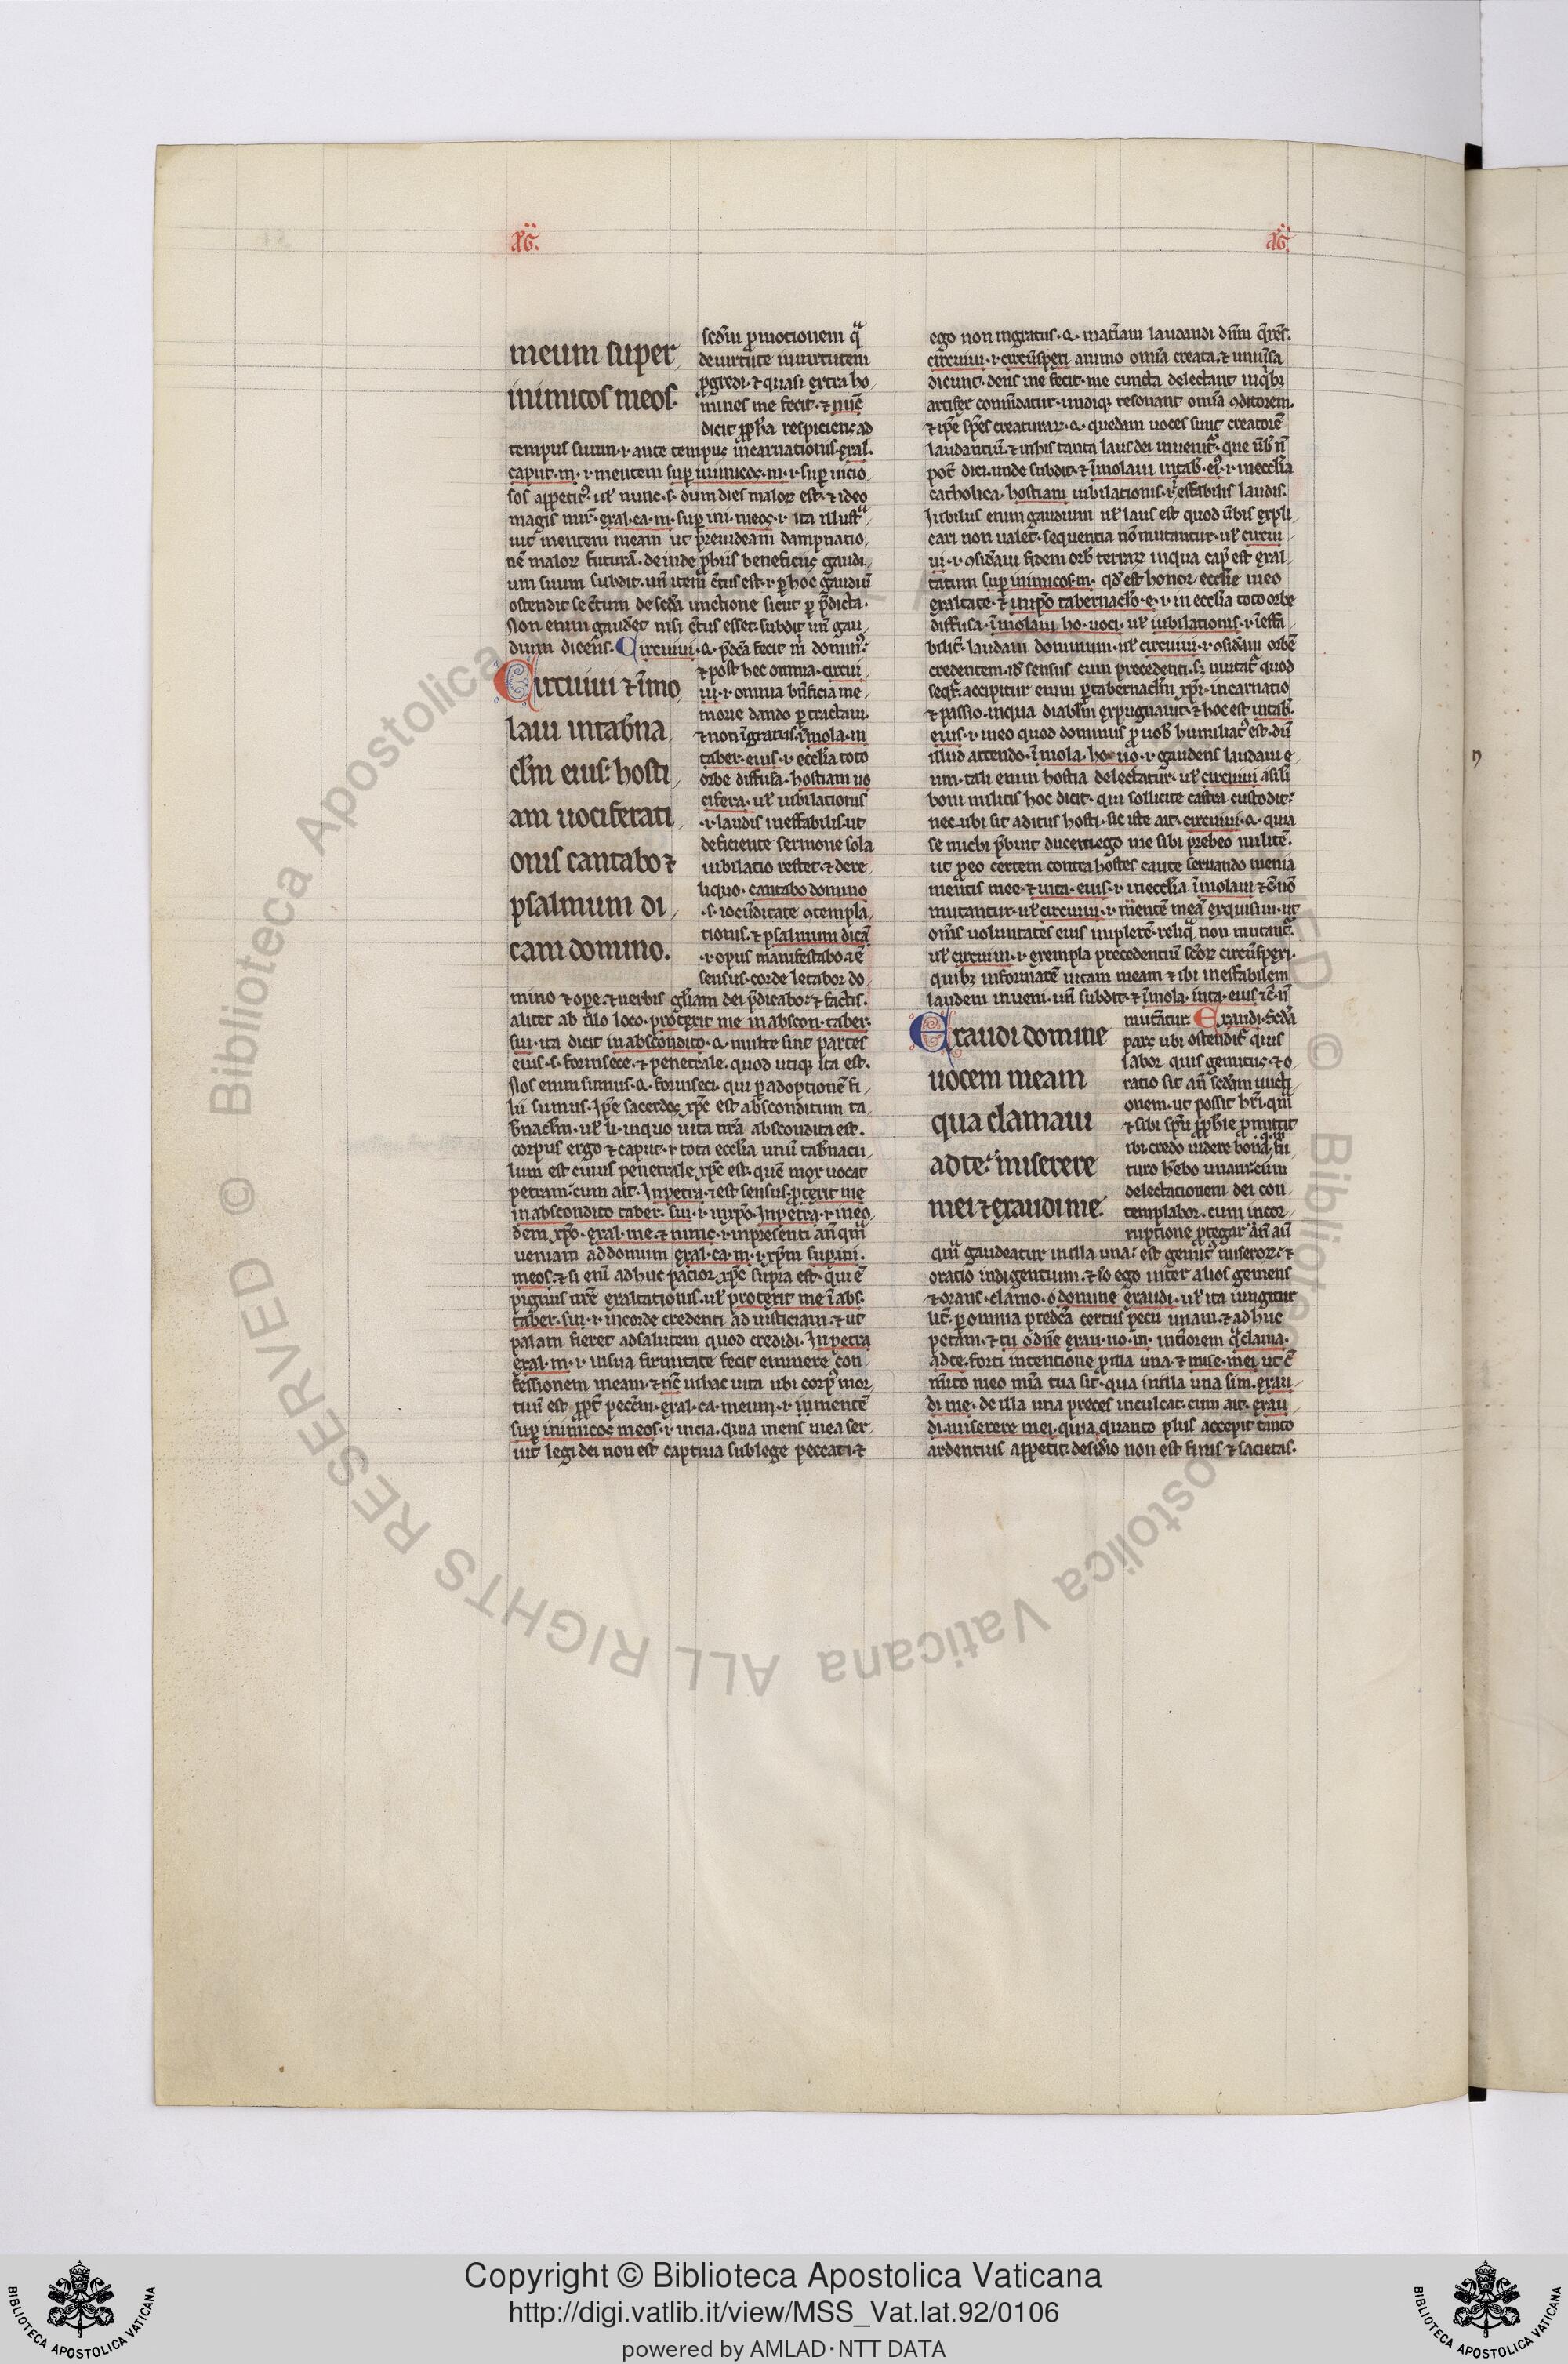 meum super
inimicos meos.
scd̄m ꝓmotionem qͣ
de uirtute in uirtutem
ꝓgredi. ⁊ quasi extra ho
mines me fecit. ⁊ nūc
dicit ꝓph̄a respiciens ad
tempus suum .i. ante tempus incarnationis. exal.
caput. m. .i. mentem suꝑ inimicos. m. .i. suꝑ uicio
sos appetitꝰ. ul̄ nunc .s. dum dies malor̄ est. ⁊ ideo
magis mir̄. exal. ca. m. suꝑ ini. meos .i. ita illustͣ
uit mentem meam ut preuideam dampnatio
nē malor̄ futurā. deinde ꝓbus beneficiis gaudi
um suum subdit. un̄ item c̄tus est .i. ꝑ hoc gaudiū
ostendit se c̄tum de scd̄a unctione sicut ꝑ p̄dicta.
Non enim gauderet nisi c̄tus esset. subdit un̄ gau
dium dicens. Circuiui. q. p̄dc̄a fecit m̄ dominꝰ.
Circuiui ⁊ īmo
laui in tab̄na
cl̄m eius: hosti
am uociferati
onis cantabo ⁊
psalmum di
cam domino.
⁊ post hec omnia. circui
ui .i. omnia bn̄ficia me
morie dando ꝑtractaui.
⁊ non īgratus. īmola. in
taber. eius .i. eccl̄ia toto
orbe diffusa. hostiam uo
cifera. ul̄ iubilationis
.i. laudis ineffabilis. ut
deficiente sermone sola
iubilatio restet. ⁊ dere
liquo. cantabo domino
.s. iocūditate ꝯtempla
tionis. ⁊ psalmum dicā
.i. opus manifestabo. ⁊ ē
sensus. corde letabor do
mino ⁊ ope. ⁊ uerbis gl̄iam dei p̄dicabo. ⁊ factis.
aliter ab illo loco. protexit me in abscon. taber.
sui. ita dicit in abscondito. q. multe sunt partes
eius .s. forinsece. ⁊ penetrale. quod utique ita est.
Nos enim sumus. q. forinseci. qui ꝑ adoptionē fi
lii sumus. Ip̄e sacerdos xp̄c est absconditum ta
b̄nacl̄m. ul̄ li. in quo uita nr̄a abscondita est.
corpus ergo ⁊ caput .i. tota eccl̄ia unū tab̄nacu
lum est cuius penetrale xp̄c est. quē mox uocat
petram. cum ait. In petra. ⁊ est sensus. ꝓtexit me
in abscondito taber. sui .i. in xp̄o. In petra .i. in eo
dem xp̄o. exal. me. ⁊ nunc .i. in presenti an̄ qm̄
ueniam ad domum exal. ca. m. .i. xp̄m suꝑ ini.
meos. ⁊ si eni adhuc patior xp̄c supra est. qui ē
pignus nr̄e exaltationis. ul̄ protexit me ī abs.
taber. sui .i. in corde credenti ad iusticiam. ⁊ ut
palam fieret ad salutem quod credidi. In petra
exal. m. .i. in sua firmitate fecit eminere con
fessionem meam. ⁊ nc̄ in hac uita ubi corpꝰ mor
tuū est ꝓpt̄ pecc̄m. exal. ca. meum .i. in mentē
suꝑ inimicos meos .i. uicia. quia mens mea ser
uit legi dei non est captiua sub lege peccati. ⁊
ego non ingratus. q. mat̄iam laudandi dn̄m q̄rēs.
circuiui .i. circūspexi animo omīa creata. ⁊ uniu̇sa
dicunt. deus me fecit. me cuncta delectant in qͥbꝫ
artifex com̄datur. undiqꝫ resonant omīa ꝯditorem.
⁊ ip̄e sp̄es creaturarꝫ. q. quedam uoces sunt creatorē
laudantiū. ⁊ in his tanta laus dei inuenit᷑. que ūb n̄
pot̄ dici. unde subdit. ⁊ īmolaui in tab. eiꝰ .i. in eccl̄ia
catholica. hostiam iubilationis .i. effabilis laudis.
Iubilus enim gaudium ul̄ laus est quod ūbis expli
cari non ualet. sequentia nō mutantur. ul̄ circui
ui .i. ꝯsid̄aui fidem orb̄ terrarꝫ in qua cap̄ est exal
tatum suꝑ inimicos. m. qd̄ est honor ecclīe in eo
exaltate. ⁊ in ip̄o tabernacl̄o. e. .i. in eccl̄ia toto orbe
diffusa. īmolaui ho. uoci. ul̄ iubilationis .i. īeffa
bilit̄. laudam dominum. ul̄ circuiui .i. ꝯsid̄aui orbē
credentem. id̄ sensus cum precedenti. sꝫ mutat᷑ quod
seqr̄. accipitur enim ꝑ tabernacl̄m xp̄i. incarnatio
⁊ passio. in qua diabl̄m expugnauit. ⁊ hoc est in tab̄.
eius .i. in eo quod dominus ꝓ nob̄ humiliatꝰ est. dū
illud attendo. īmola. ho. uo. .i. gaudens laudaui e
um. tali enim hostia delectatur. ul̄ circuiui a sīli
boni militis hoc dicit. qui sollicite castra custodit.
nec ubi sit aditus hosti. sic iste ait. circuiui. q. quia
se michi p̄buit ducem. ego me sibi prebeo militē.
ut ꝓ eo certem contra hostes caute seruando menia
mentis mee. ⁊ in ta. eius .i. in eccl̄ia īmolaui ⁊ c̄ nō
mutantur. ul̄ circuiui .i. mentē meā exquisiui. ut
om̄s uoluntates eius implerē. reliqͣ non mutant᷑.
ul̄ circuiui .i. exempla precedentiū scōrꝫ circūspexi.
quibꝫ informarē uitam meam ⁊ ibi ineffabilem
laudem inueni. un̄ subdit. ⁊ īmola. in ta. eius ⁊c̄ n̄
Exaudi domine
uocem meam
qua clamaui
ad te: miserere
mei ⁊ exaudi me.
mutātur. Exaudi. Scd̄a
pars ubi ostendit᷑ quis
labor quis gemitus. ⁊ o
ratio sit an̄ scd̄am uncti
onem. ut possit
⁊ sibi sp̄u ꝓph̄ie promittit
ibi. credo uidere bona
turo hēbo unam. cum
delectationem dei con
templabor. cum incor
ruptione ꝓtegar an̄ aū
qͣm gaudeatur in illa una. est gemitꝰ miserorꝫ. ⁊
oratio indigentium. ⁊ iō ego inter alios gemens
⁊ orans. clamo. o domine exaudi. ul̄ ita iungitur
lit̄. ꝑ omnia predc̄a certus pecii unam. ⁊ adhuc
petam. ⁊ tu o dn̄e exau. uo. m. int̄iorem qͣ clama.
ad te. forti intentione ꝓ illa una. ⁊ mise. mei ut c̄
mito meo mīa tua sit. qua in illa una sim. exau
di me. de illa una preces inculcat. cum ait. exau
di. miserere mei. quia quanto plus accepit tanto
ardentius appetit. desid̄io non est finis ⁊ sacietas.
Copyright © Biblioteca Apostolica Vaticana
http://digi.vatlib.it/view/MSS_Vat.lat.92/0106
powered by AMLAD · NTT DATA